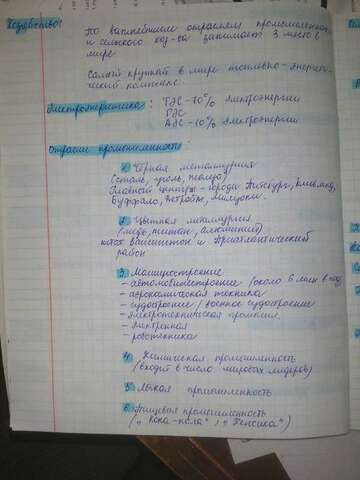 Хозяйство: по важнейшим отраслям промышленности
и сельского хоз-ва занимает 3 место в
мире.
Самый крупный в мире топливно-энерге-
тический комплекс.
Электроэнергетика: ТЭС - 70% электроэнергии
ГЭС
АЭС - 10% электроэнергии
Отрасли промышленности:
1. Чёрная металлургия
(сталь, чугун,
Главный центры - города Питсбург, Кливленд,
Буффало, Детройт, Милуоки.
2. Цветная металлургия
(медь, титан, алюминий)
штат Вашингтон и Приатлантический
район
3. Машиностроение
- автомобилестроение (около 6 млн в год)
- аэрокосмическая техника
- судостроение / военное судостроение
- электротехническая промышл.
- электронная
- робототехника
4. Химическая промышленность
(входит в число мировых лидеров)
5. Лёгкая промышленность
6. Пищевая промышленность
(„Кока-кола", „Пепсика")